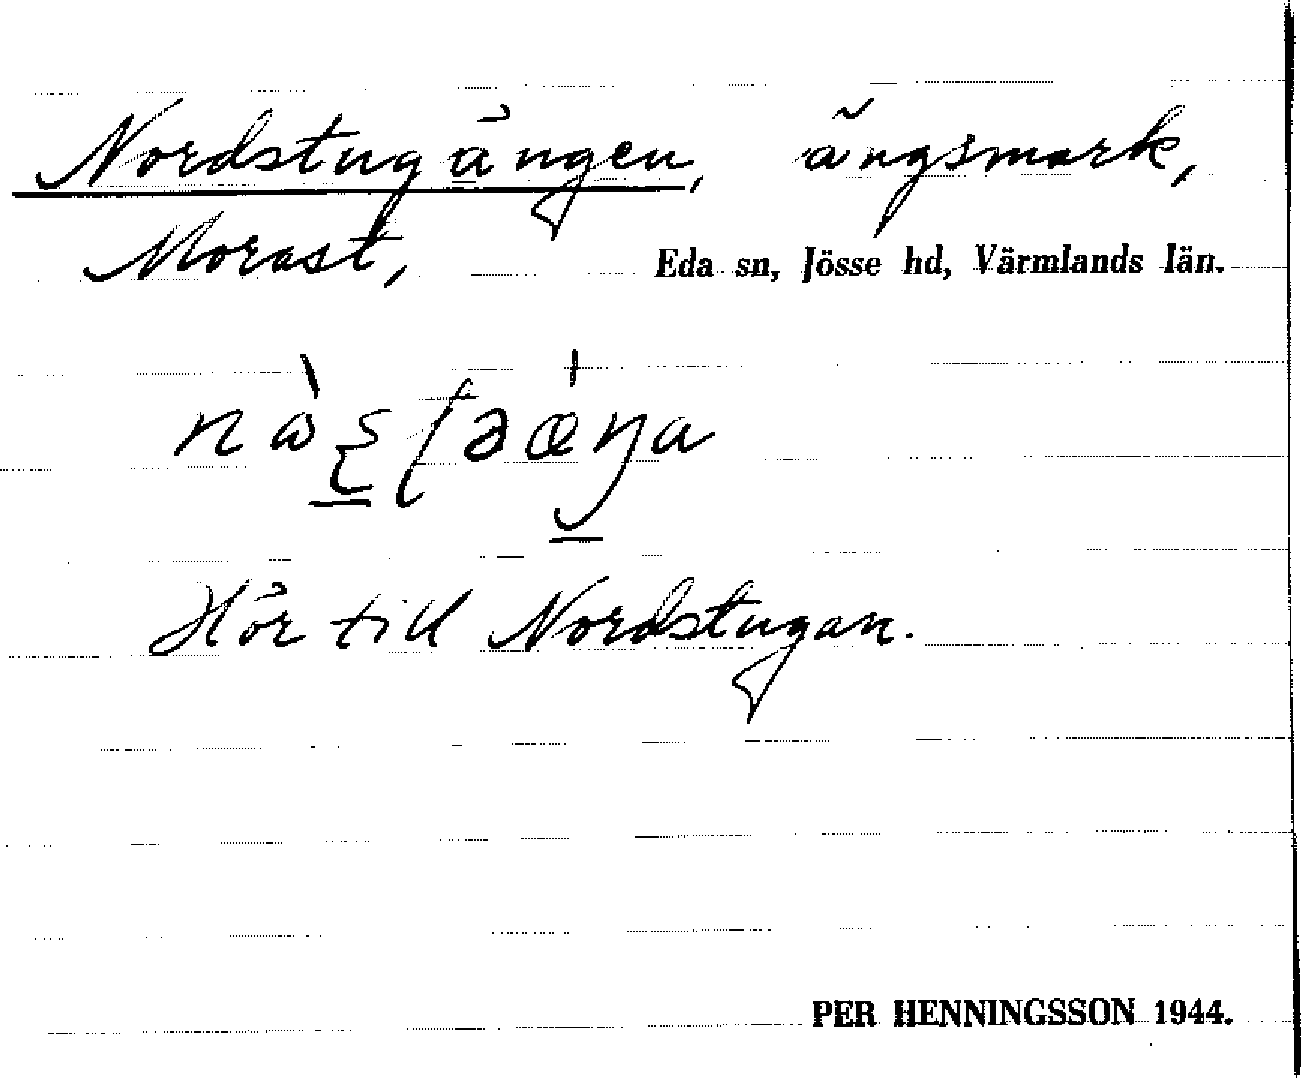 Nordstugängen, ängsmark,
Morast, Eda sn, Jösse hd, Värmlands län.
Hör till Nordstugan.
PER HENNINGSSON 1944.